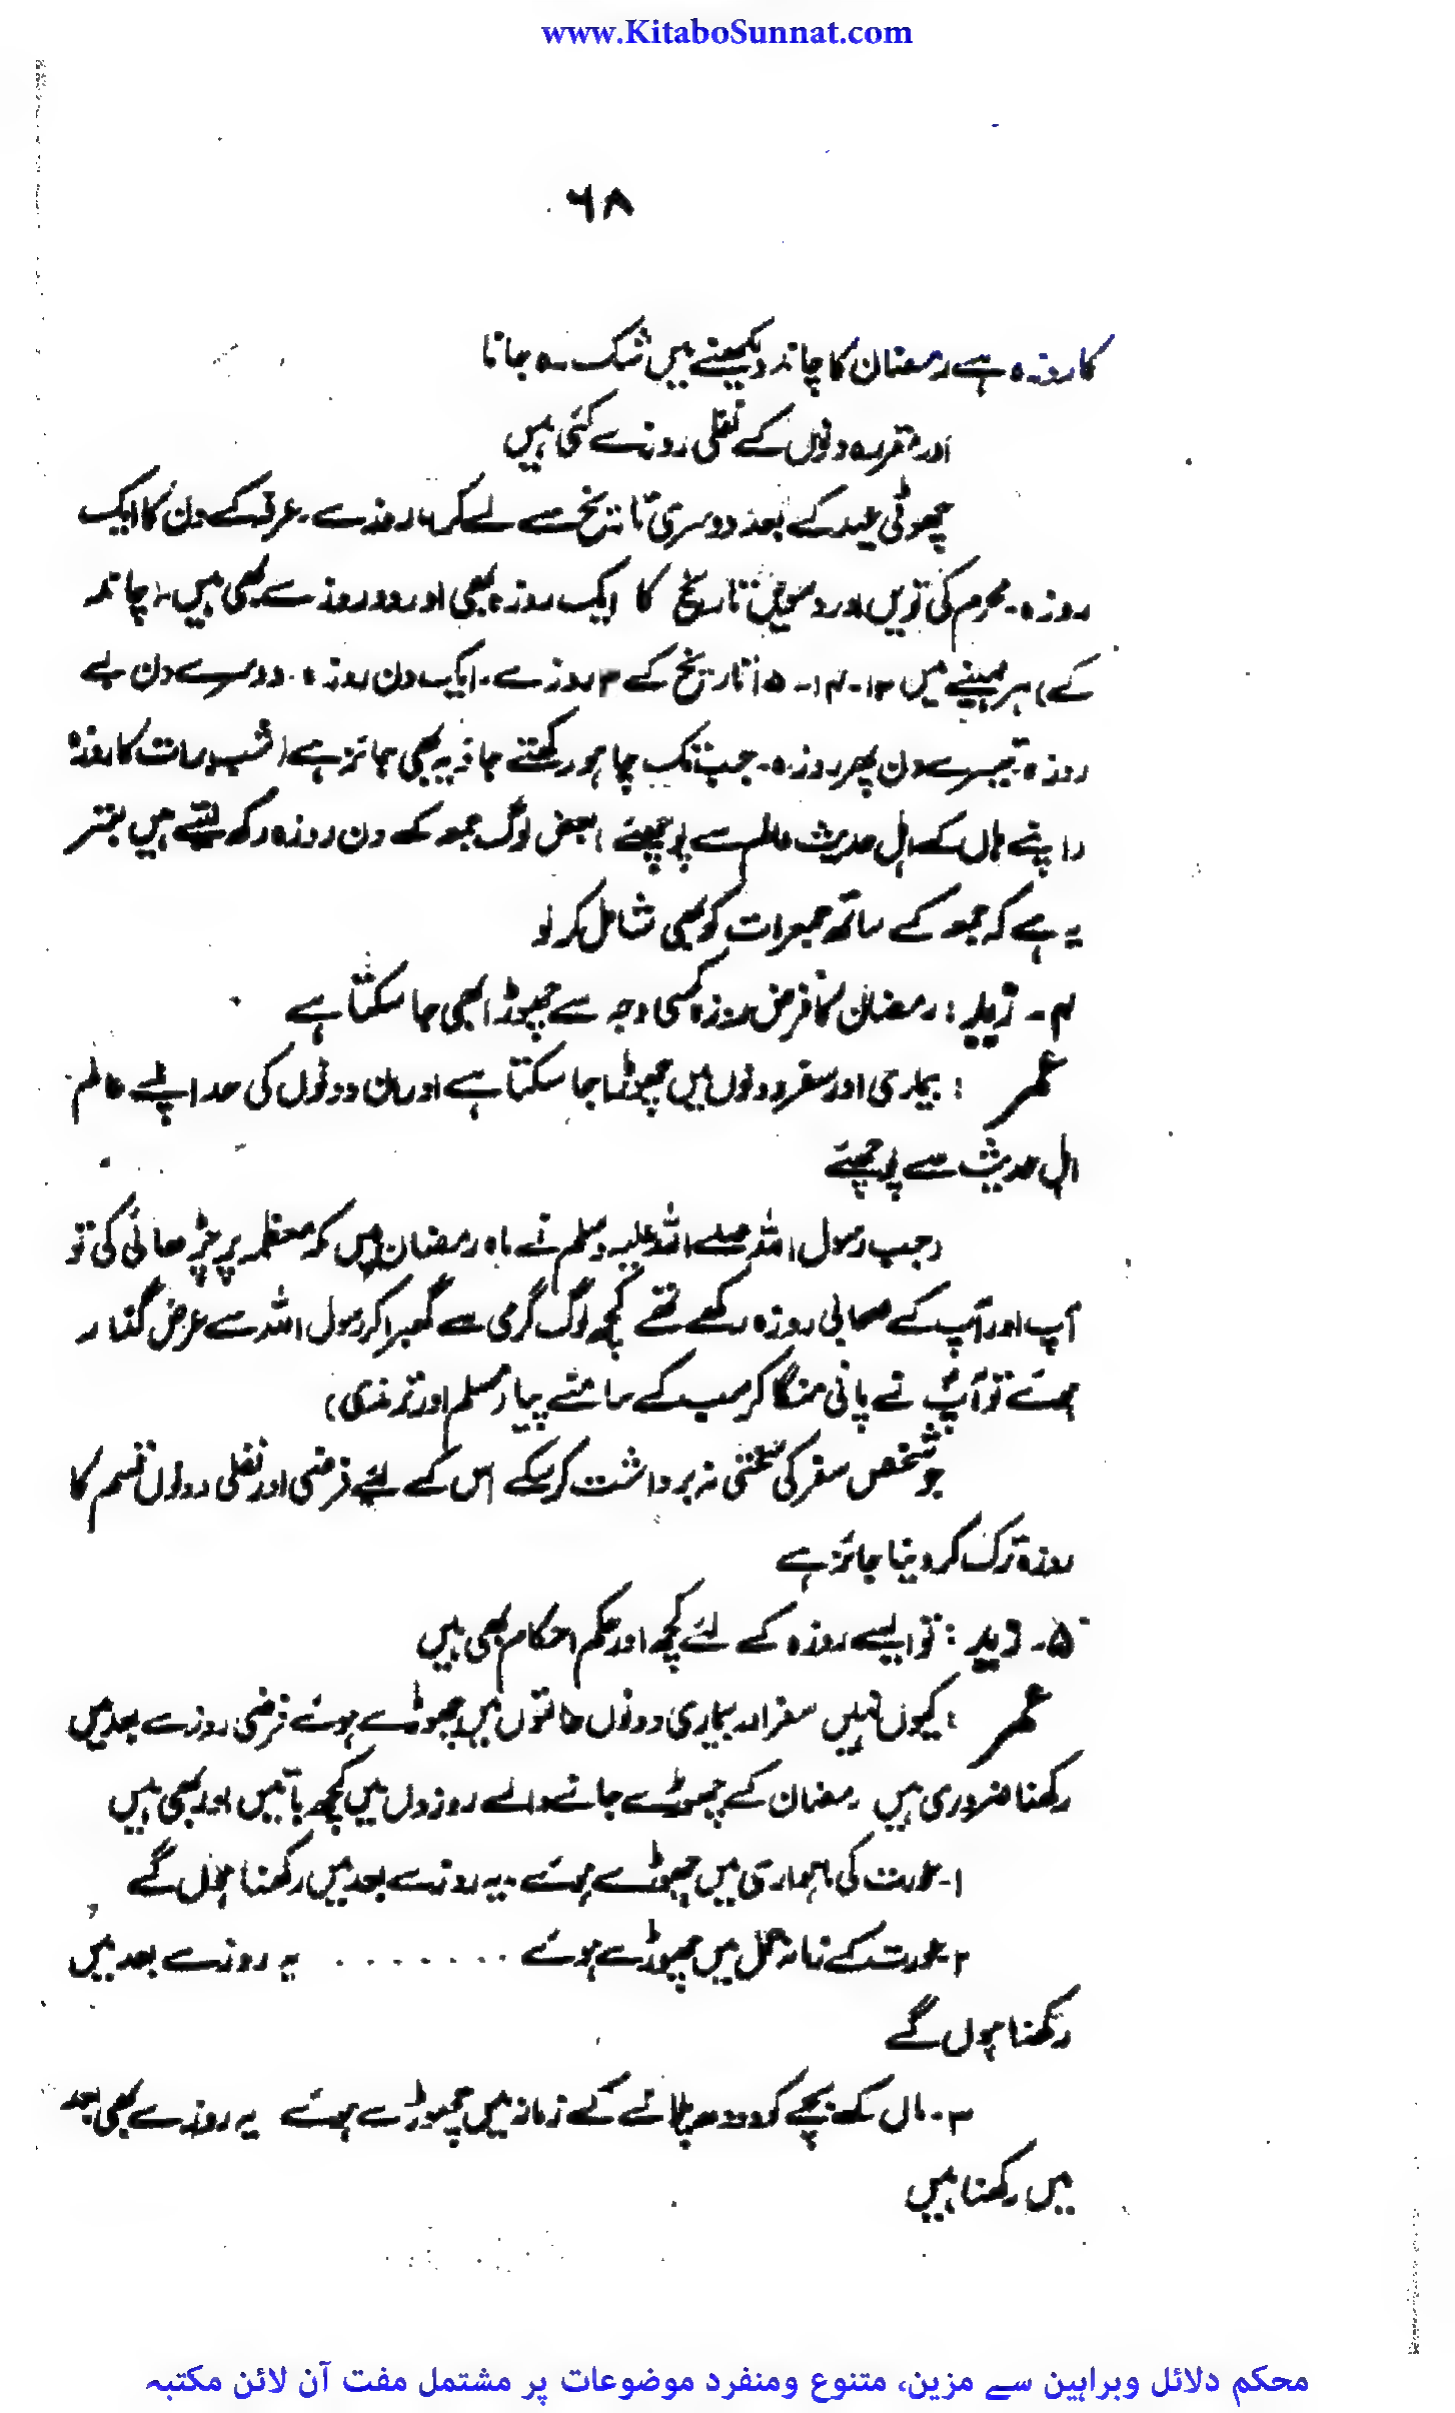 www.KitaboSunnat.com
۶۸
کا روزہ ہے رمضان کا چاند دیکھنے میں شک ہو جانا
اور مقررہ دنوں کے نفلی روزے کئی ہیں
چھوٹی عید کے بعد دوسری تاریخ سے لے کر ۶ روزے ۔ عرفہ کے دن کا ایک
روزہ ۔ محرم کی نویں اور دسویں تاریخ کا ایک روزہ بھی اور دو روزے بھی ہیں ۔ (چاند
کے) ہر مہینے میں ۱۳ ۔ ۱۴ ۔ ۱۵ تاریخ کے ۳ روزے ۔ ایک دن روزہ ۔ دوسرے دن بے
روزہ ۔ تیسرے دن پھر روزہ ۔ جب تک چاہو رکھتے جاؤ یہ بھی جائز ہے (شب برات کا روزہ
اپنے ہاں کے اہل حدیث عالم سے پوچھئے) بعض لوگ جمعہ کے دن روزہ رکھ لیتے ہیں بہتر
یہ ہے کہ جمعہ کے ساتھ جمعرات کو بھی شامل کر لو
۴ ۔ زید : رمضان کا فرض روزہ کسی وجہ سے چھوڑا بھی جا سکتا ہے
عمر : بیماری اور سفر دونوں میں چھوڑا جا سکتا ہے اور ان دونوں کی حد اپنے عالم
اہل حدیث سے پوچھئے
(جب رسول اللہ صلے اللہ علیہ وسلم نے ماہ رمضان میں مکہ معظمہ پر چڑھائی کی تو
آپ اور آپ کے صحابی روزہ رکھے تھے کچھ لوگ گرمی سے گھبرا کر رسول اللہ سے عرض گذار
ہوئے تو آپؐ نے پانی منگا کر سب کے سامنے پیا (مسلم اور ترمذی)
جو شخص سفر کی سختی نہ برداشت کر سکے اس کے لئے فرضی اور نفلی دونوں قسم کا
روزہ ترک کر دینا جائز ہے
۵ ۔ زید : تو ایسے روزہ کے لئے کچھ اور حکم احکام بھی ہیں
عمر : کیوں نہیں سفر اور بیماری دونوں حالتوں میں چھوڑے ہوئے فرضی روزے بعد میں
رکھنا ضروری ہیں رمضان کے چھوڑے جانے والے روزوں میں کچھ باتیں اور بھی ہیں
۱ ۔ عورت کی ماہواری میں چھوڑے ہوئے ۔ یہ روزے بعد میں رکھنا ہوں گے
۲ ۔ عورت کے زمانہ حمل میں چھوڑے ہوئے . . . . . . . یہ روزے بعد میں
رکھنا ہوں گے
۳ ۔ ماں کے بچے کو دودھ پلانے کے زمانہ میں چھوڑے ہوئے یہ روزے بھی بعد
میں رکھنا ہیں
محکم دلائل وبراہین سے مزین، متنوع ومنفرد موضوعات پر مشتمل مفت آن لائن مکتبہ